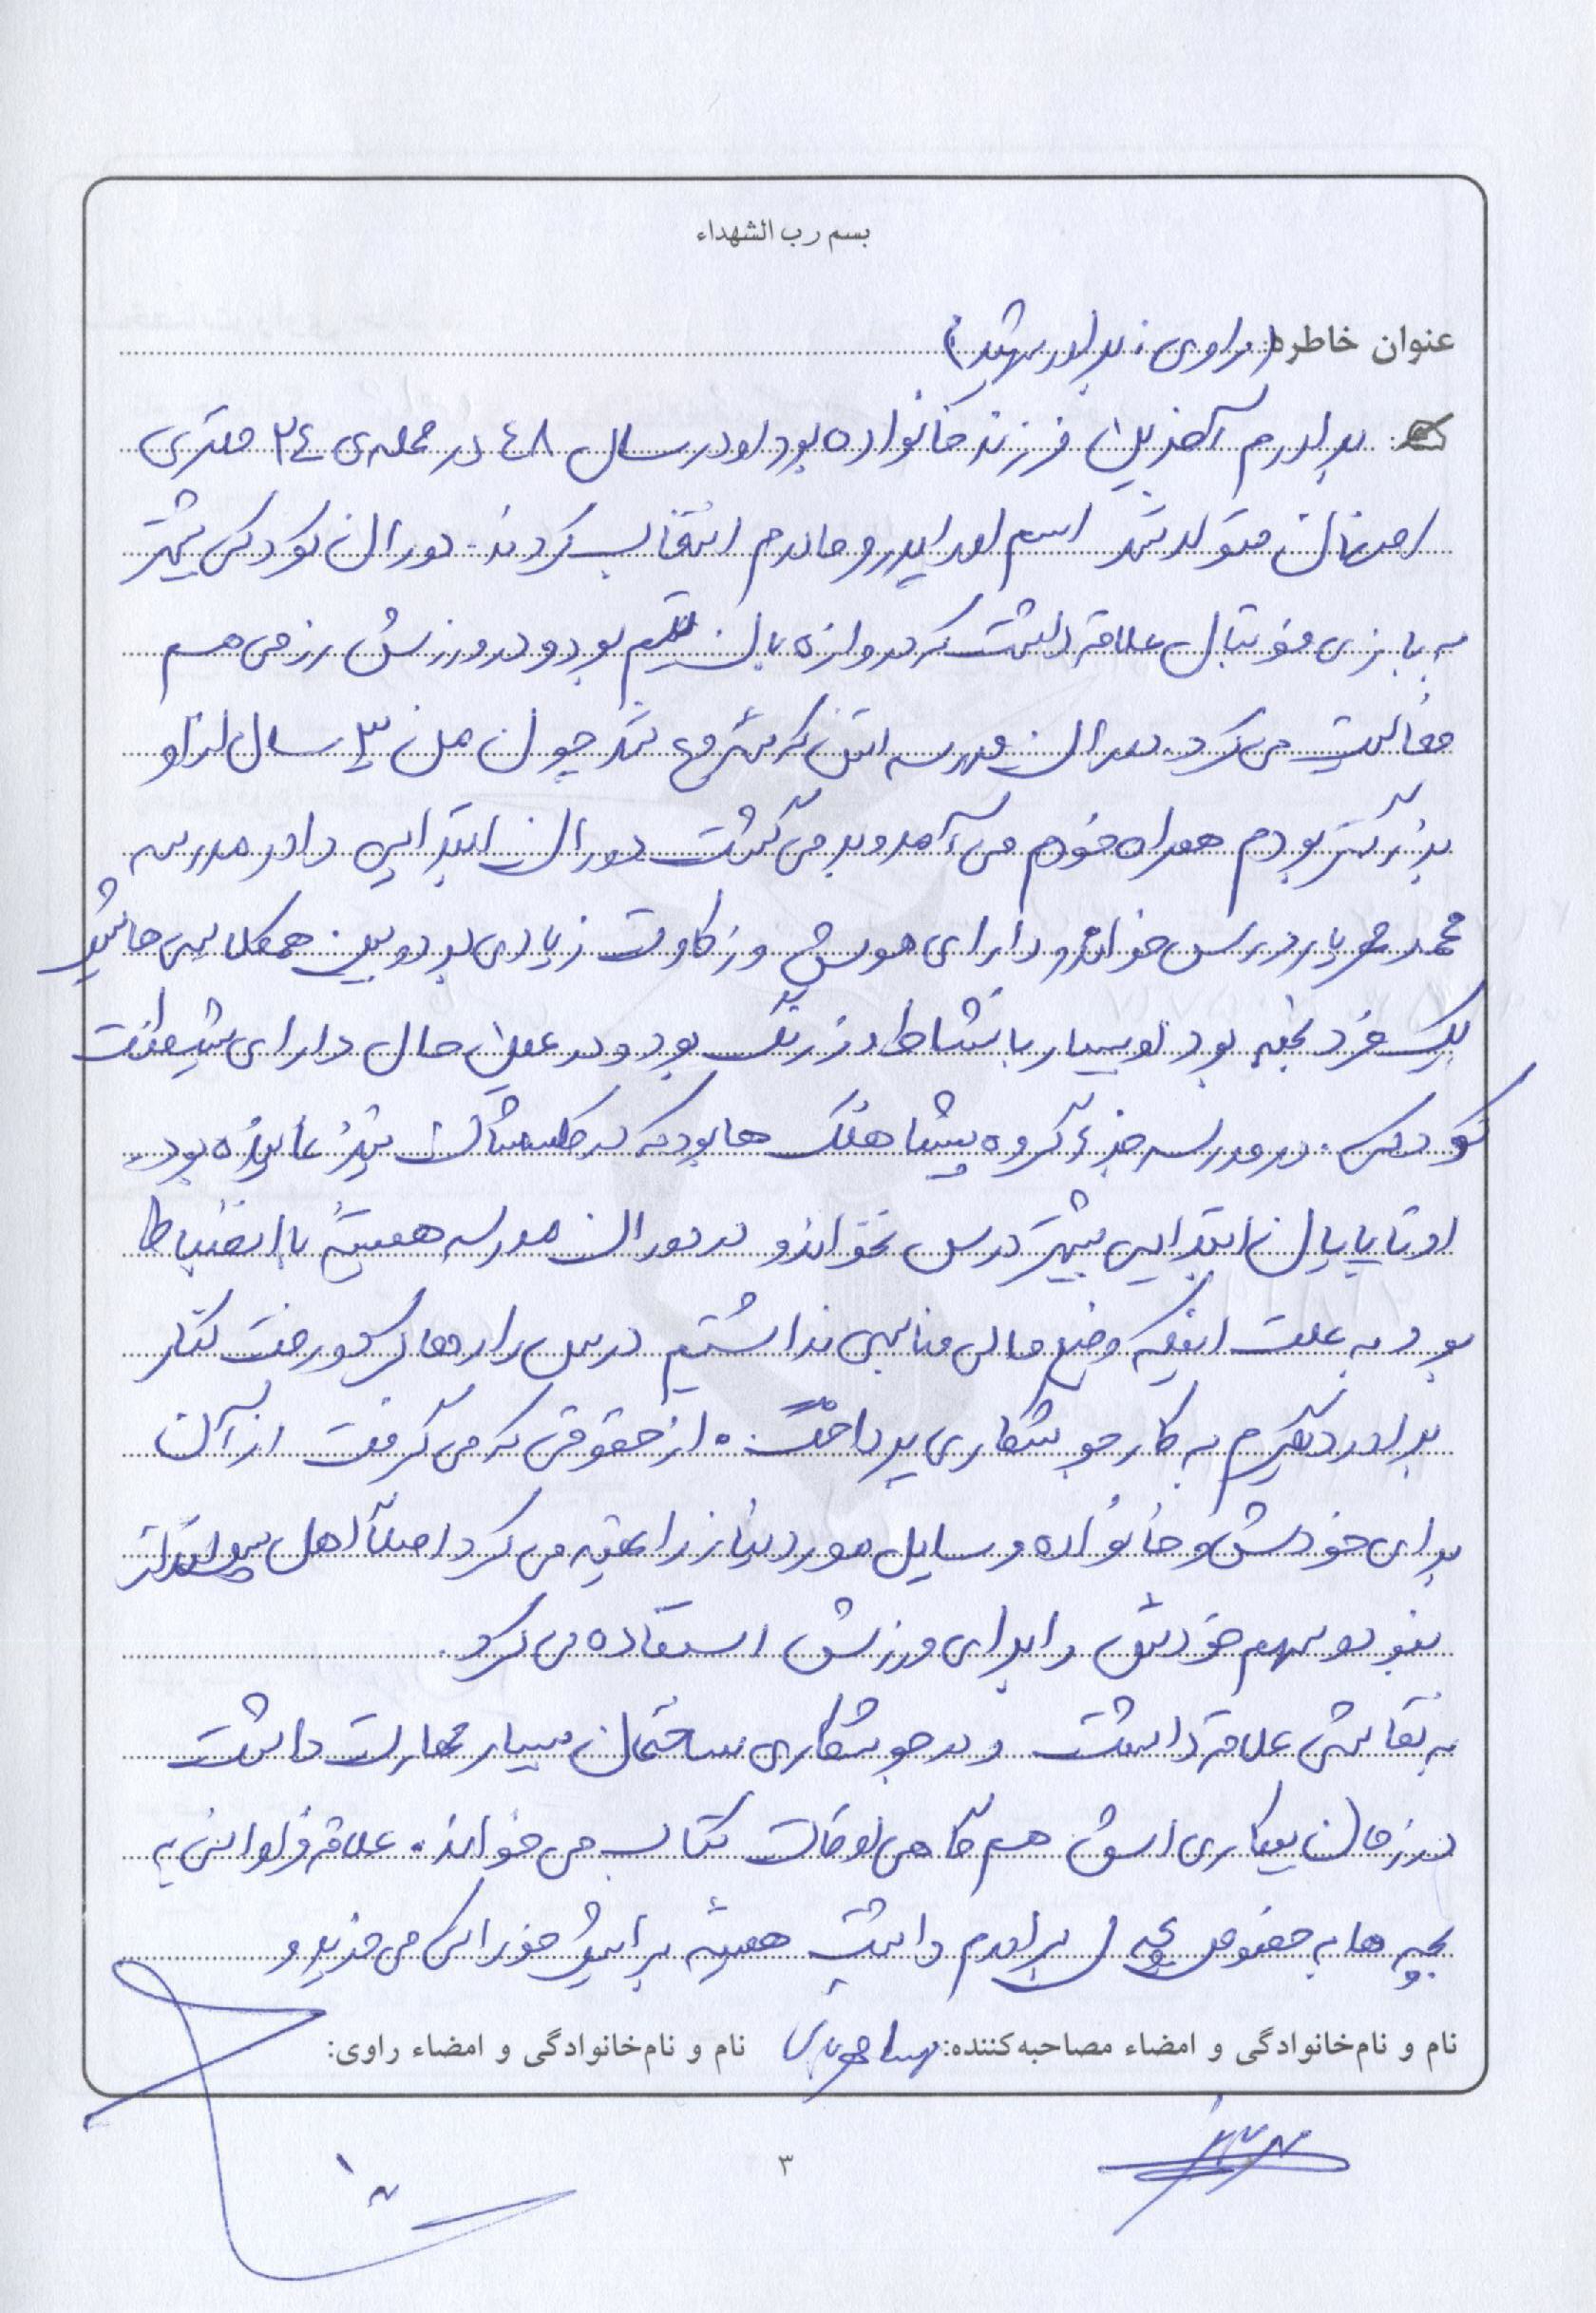 بسم رب الشهداء
عنوان خاطره: (راوی: برادر شهید)
برادرم آخرین فرزند خانواده بود او در سال ٤٨ در محله‌ی ٢٤ متری
اصفهان متولد شد اسم او را پدر و مادرم انتخاب کردند. دوران کودکی بیشتر
به بازی فوتبال علاقه داشت که دروازه بان تیم بود و در ورزش رزمی هم
فعالیت می‌کرد. دوران مدرسه اش که شروع شد چون من ٣ سال از او
بزرگتر بودم همراه خودم می آمد و بر می‌گشت دوران ابتدایی را در مدرسه
محمد مهریار درس خواند و دارای هوش و زکاوت زیادی بود و بین همکلاسی هایش
یک فرد نخبه بود او بسیار با نشاط و زرنگ بود و در عین حال دارای شیطنت
کودکی. در مدرسه جزء گروه پیشاهنگ ها بود که در کلاسشان نیز نماینده بود.
او تا پایان ابتدایی بیشتر درس نخواند و در دوران مدرسه همیشه با انضباط
بود به علت اینکه وضع مالی مناسبی نداشتیم درس را رها کرد و رفت کنار
برادر دیگرم به کار جوشکاری پرداخت. از حقوقی که می گرفت از آن
برای خودش و خانواده وسایل مورد نیاز را تهیه می کرد اصلاً اهل پس‌انداز
نبود و سهم خودش را برای ورزش استفاده می کرد.
به نقاشی علاقه داشت و در جوشکاری ساختمان بسیار مهارت داشت
در زمان بیکاری اش هم گاهی اوقات کتاب می خواند. علاقه فراوانی به
بچه ها به خصوص بچه ی برادرم داشت همیشه برایش خوراکی می خرید و
نام و نام‌خانوادگی و امضاء مصاحبه‌کننده: نام و نام‌خانوادگی و امضاء راوی:
٣